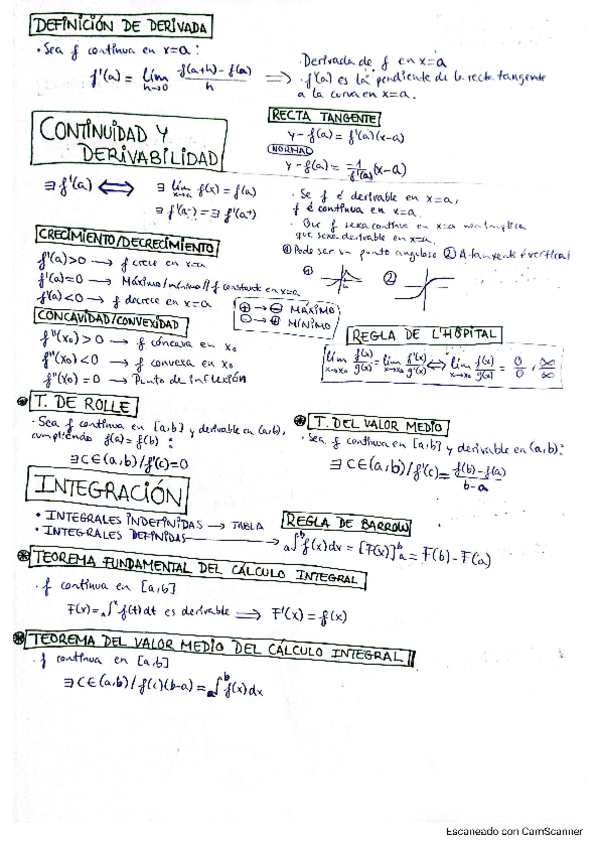 DEFINICIÓN DE DERIVADA
· Sea f continua en x=a:
f'(a) = lím h→0 f(a+h) - f(a) / h ⟹ · Derivada de f en x=a
· f'(a) es la pendiente de la recta tangente
a la curva en x=a.
CONTINUIDAD Y
DERIVABILIDAD
RECTA TANGENTE
y - f(a) = f'(a)(x-a)
NORMAL
y - f(a) = -1/f'(a) (x-a)
∃ f'(a) ⟺ ∃ lím x→a f(x) = f(a)
∃ f'(a⁻) = ∃ f'(a⁺)
· Se f é derivable en x=a,
f é continua en x=a.
· Que f sexa continua en x=a non implica
que sexa derivable en x=a.
① Pode ser un punto anguloso ② A tanxente é vertical
① ②
CRECIMIENTO/DECRECIMIENTO
f'(a)>0 → f crece en x=a
f'(a)=0 → Máximo/mínimo // f constante en x=a
f'(a)<0 → f decrece en x=a
⊕ → ⊖ MÁXIMO
⊖ → ⊕ MÍNIMO
CONCAVIDAD/CONVEXIDAD
f''(x₀) > 0 → f cóncava en x₀
f''(x₀) < 0 → f convexa en x₀
f''(x₀) = 0 → Punto de inflexión
REGLA DE L'HÔPITAL
lím x→x₀ f(x)/g(x) = lím x→x₀ f'(x)/g'(x) ⟺ lím x→x₀ f(x)/g(x) = 0/0, ∞/∞
T. DE ROLLE
· Sea f continua en [a,b] y derivable en (a,b),
cumpliendo f(a) = f(b):
∃ C ∈ (a,b) / f'(c) = 0
T. DEL VALOR MEDIO
· Sea f continua en [a,b] y derivable en (a,b):
∃ C ∈ (a,b) / f'(c) = f(b) - f(a) / b-a
INTEGRACIÓN
• INTEGRALES INDEFINIDAS → TABLA
• INTEGRALES DEFINIDAS →
REGLA DE BARROW
a∫b f(x)dx = [F(x)]ba = F(b) - F(a)
TEOREMA FUNDAMENTAL DEL CÁLCULO INTEGRAL
· f continua en [a,b]
F(x) = a∫x f(t)dt es derivable ⟹ F'(x) = f(x)
TEOREMA DEL VALOR MEDIO DEL CÁLCULO INTEGRAL
· f continua en [a,b]
∃ C ∈ (a,b) / f(c)(b-a) = a∫b f(x)dx
Escaneado con CamScanner